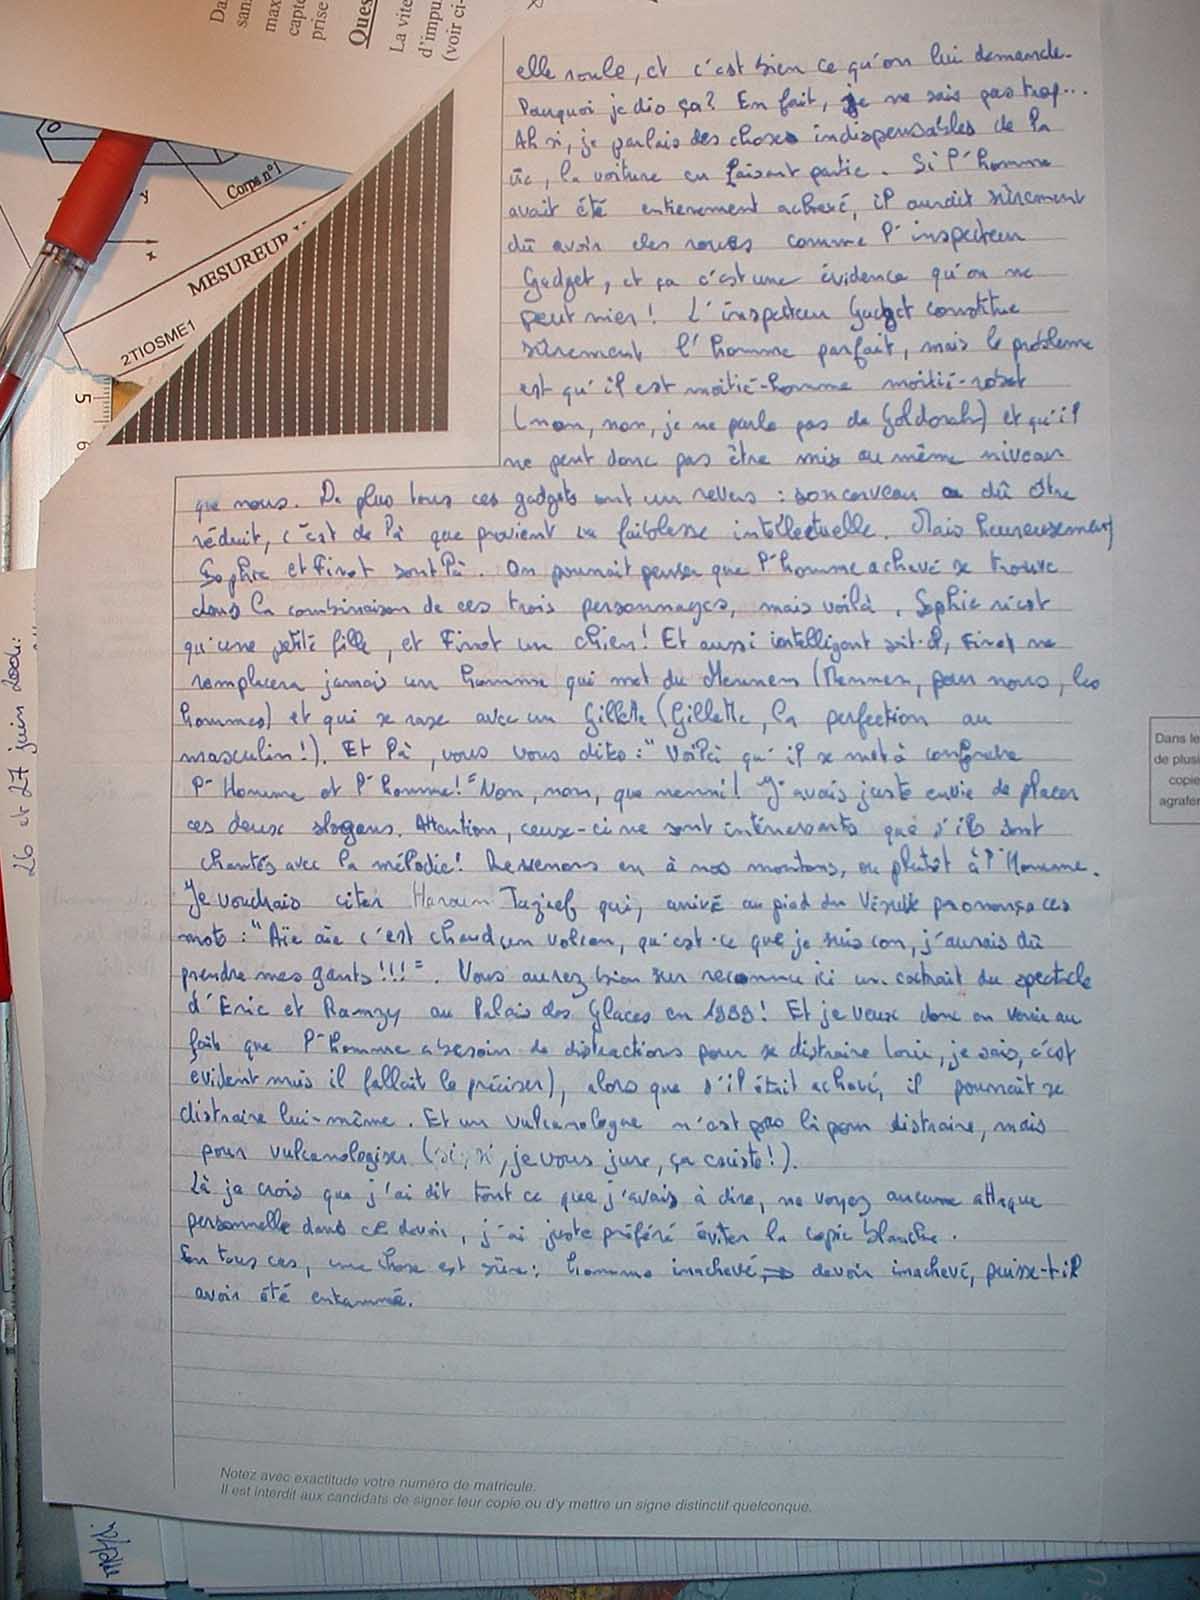 Da
sans
max
capte
prise
Ques
La vite
d'impu
(voir ci-
Corps n°1
y
x
MESUREUR
2TIOSME1
5
6
elle roule, et c'est bien ce qu'on lui demande.
Pourquoi je dis ça? En fait, je ne sais pas trop...
Ah si, je parlais des choses indispensables de la
vie, la voiture en faisant partie. Si l'homme
avait été entierement achevé, il aurait sûrement
dû avoir des roues comme l'inspecteur
Gadget, et ça c'est une évidence qu'on ne
peut nier! L'inspecteur Gadget constitue
sûrement l'homme parfait, mais le problème
est qu'il est moitié-homme moitié-robot
(non, non, je ne parle pas de Goldorak) et qu'il
ne peut donc pas être mis au même niveau
que nous. De plus tous ces gadgets ont un revers : son cerveau a dû être
réduit, c'est de là que provient sa faiblesse intellectuelle. Mais heureusement
Sophie et Finot sont là. On pourrait penser que l'homme achevé se trouve
dans la combinaison de ces trois personnages, mais voilà, Sophie n'est
qu'une petite fille, et Finot un chien! Et aussi intelligent soit-il, Finot ne
remplacera jamais un homme qui met du Mennen (Mennen, pour nous, les
hommes) et qui se rase avec un Gillette (Gillette, la perfection au
masculin!). Et là, vous vous dites : "Voilà qu'il se met à confondre
l'Homme et l'homme!" Non, non, que nenni! J'avais juste envie de placer
ces deux slogans. Attention, ceux-ci ne sont intéressants que s'ils sont
chantés avec la mélodie! Revenons en à nos moutons, ou plutôt à l'Homme.
Je voudrais citer Haroun Tazieff qui, arrivé au pied du Vésuve prononça ces
mots : "Aïe aïe c'est chaud un volcan, qu'est-ce que je suis con, j'aurais dû
prendre mes gants!!!". Vous aurez bien sur reconnu ici un extrait du spectacle
d'Eric et Ramzy au Palais des Glaces en 1999! Et je veux donc en venir au
fait que l'homme a besoin de distractions pour se distraire (oui, je sais, c'est
evident mais il fallait le préciser), alors que s'il était achevé, il pourrait se
distraire lui-même. Et un vulcanologue n'est pas là pour distraire, mais
pour vulcanologiser (si, si, je vous jure, ça existe!).
Là je crois que j'ai dit tout ce que j'avais à dire, ne voyez aucune attaque
personnelle dans ce devoir, j'ai juste préféré éviter la copie blanche.
En tous cas, une chose est sûre : homme inachevé ⇒ devoir inachevé, puisse-t-il
avoir été entammé.
Notez avec exactitude votre numéro de matricule.
Il est interdit aux candidats de signer leur copie ou d'y mettre un signe distinctif quelconque.
26 et 27 juin
Dans le
de plusi
copie
agrafer